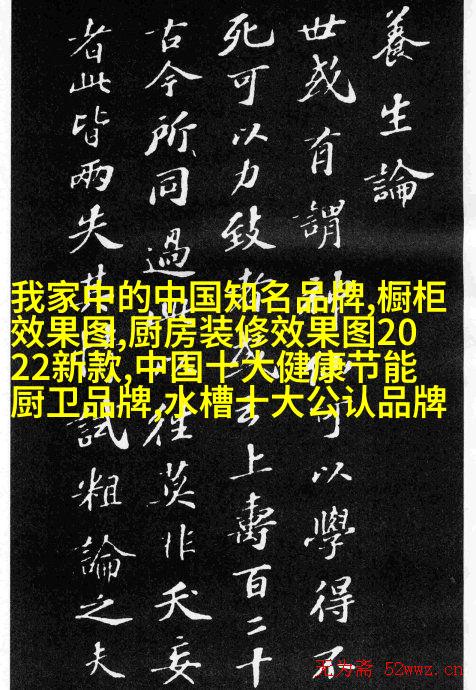 養生論
世或有謂可以學得不
死可以力致云上壽百二十
古今所同過莫非夭妄
者此皆兩失其試粗論之夫
我家中的中国知名品牌,橱柜
效果图,厨房装修效果图20
22新款,中国十大健康节能
厨卫品牌,水槽十大公认品牌
无为斋 52wwz.cn